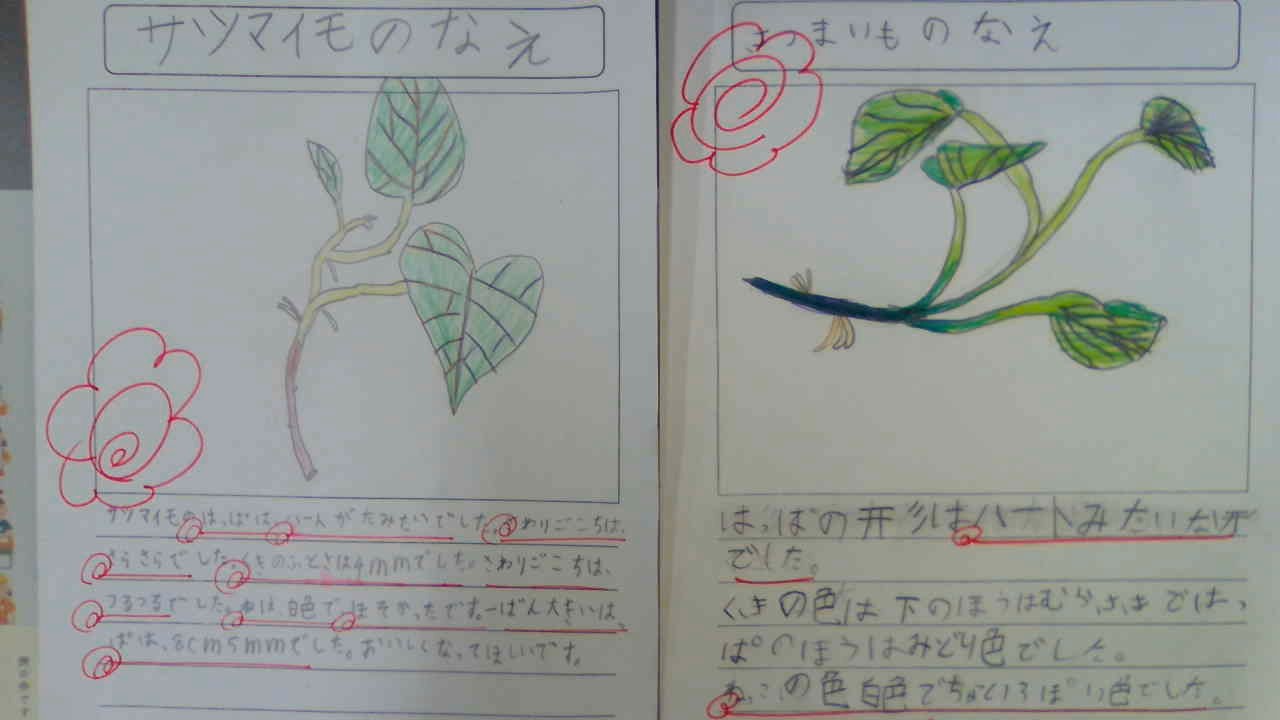 サツマイモのなえ
サツマイモのはっぱは、ハートがたみたいでした。さわりごこちは、
さらさらでした。くきのふとさは4mmでした。さわりごこちは、
つるつるでした。ねは、白色でほそかったです。一ばん大きいは、
ぱは、8cm5mmでした。おいしくなってほしいです。
さつまいものなえ
はっぱの形はハートみたいな形
でした。
くきの色は下のほうはむらさきではっ
ぱのほうはみどり色でした。
ねっこの色白色でちゃいろっぽい色でした。